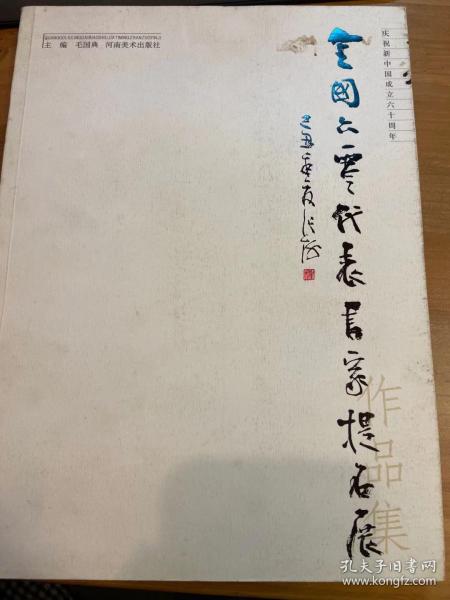 主 编 毛国典 河南美术出版社
庆祝新中国成立六十周年
全国六零代表书家提名展
作品集
孔夫子旧书网
www.kongfz.com